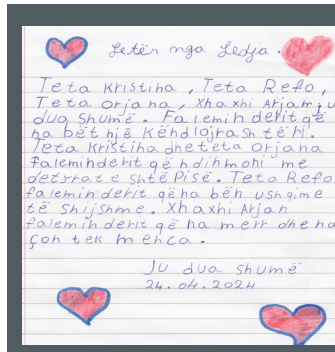 Letër nga Ledja.
Teta Kristina, Teta Refo,
Teta orjana, Xhaxhi Arjan ju
dua shumë. Faleminderit që
na bët një Këndlojrash tëri.
Teta Kristina dhe teta orjana
faleminderit që ndihmoni me
detyrat e shtëPisë. Teta Refo
faleminderit që na bën ushqime
të shijshme. Xhaxhi Arjan
faleminderit që na merr dhe na
çon tek menca.
Ju dua shumë
24.04.2024